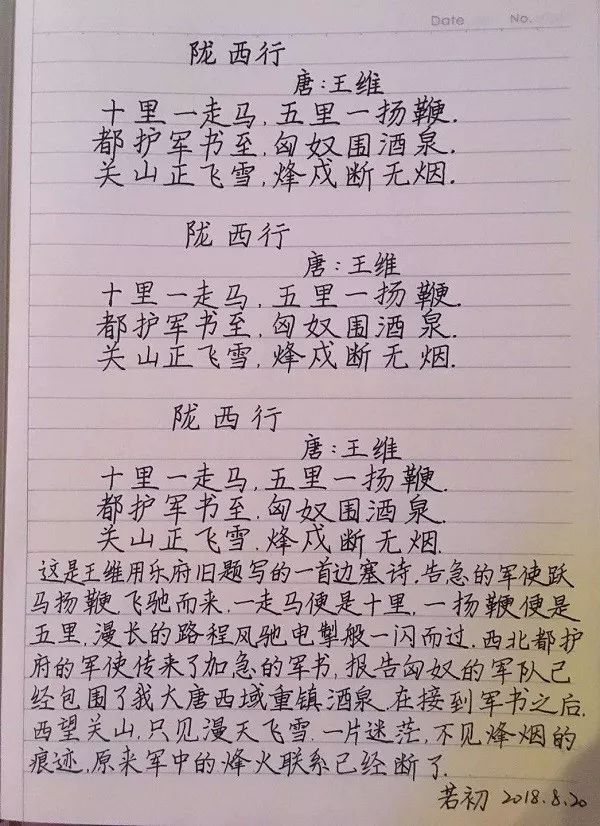 Date No.
陇西行
唐:王维
十里一走马,五里一扬鞭.
都护军书至,匈奴围酒泉.
关山正飞雪,烽戍断无烟.
陇西行
唐:王维
十里一走马,五里一扬鞭.
都护军书至,匈奴围酒泉.
关山正飞雪,烽戍断无烟.
陇西行
唐:王维
十里一走马,五里一扬鞭.
都护军书至,匈奴围酒泉.
关山正飞雪,烽戍断无烟.
这是王维用乐府旧题写的一首边塞诗,告急的军使跃
马扬鞭,飞驰而来,一走马便是十里,一扬鞭便是
五里,漫长的路程风驰电掣般一闪而过,西北都护
府的军使传来了加急的军书,报告匈奴的军队已
经包围了我大唐西域重镇酒泉,在接到军书之后,
西望关山,只见漫天飞雪,一片迷茫,不见烽烟的
痕迹,原来军中的烽火联系已经断了.
若初 2018.8.20